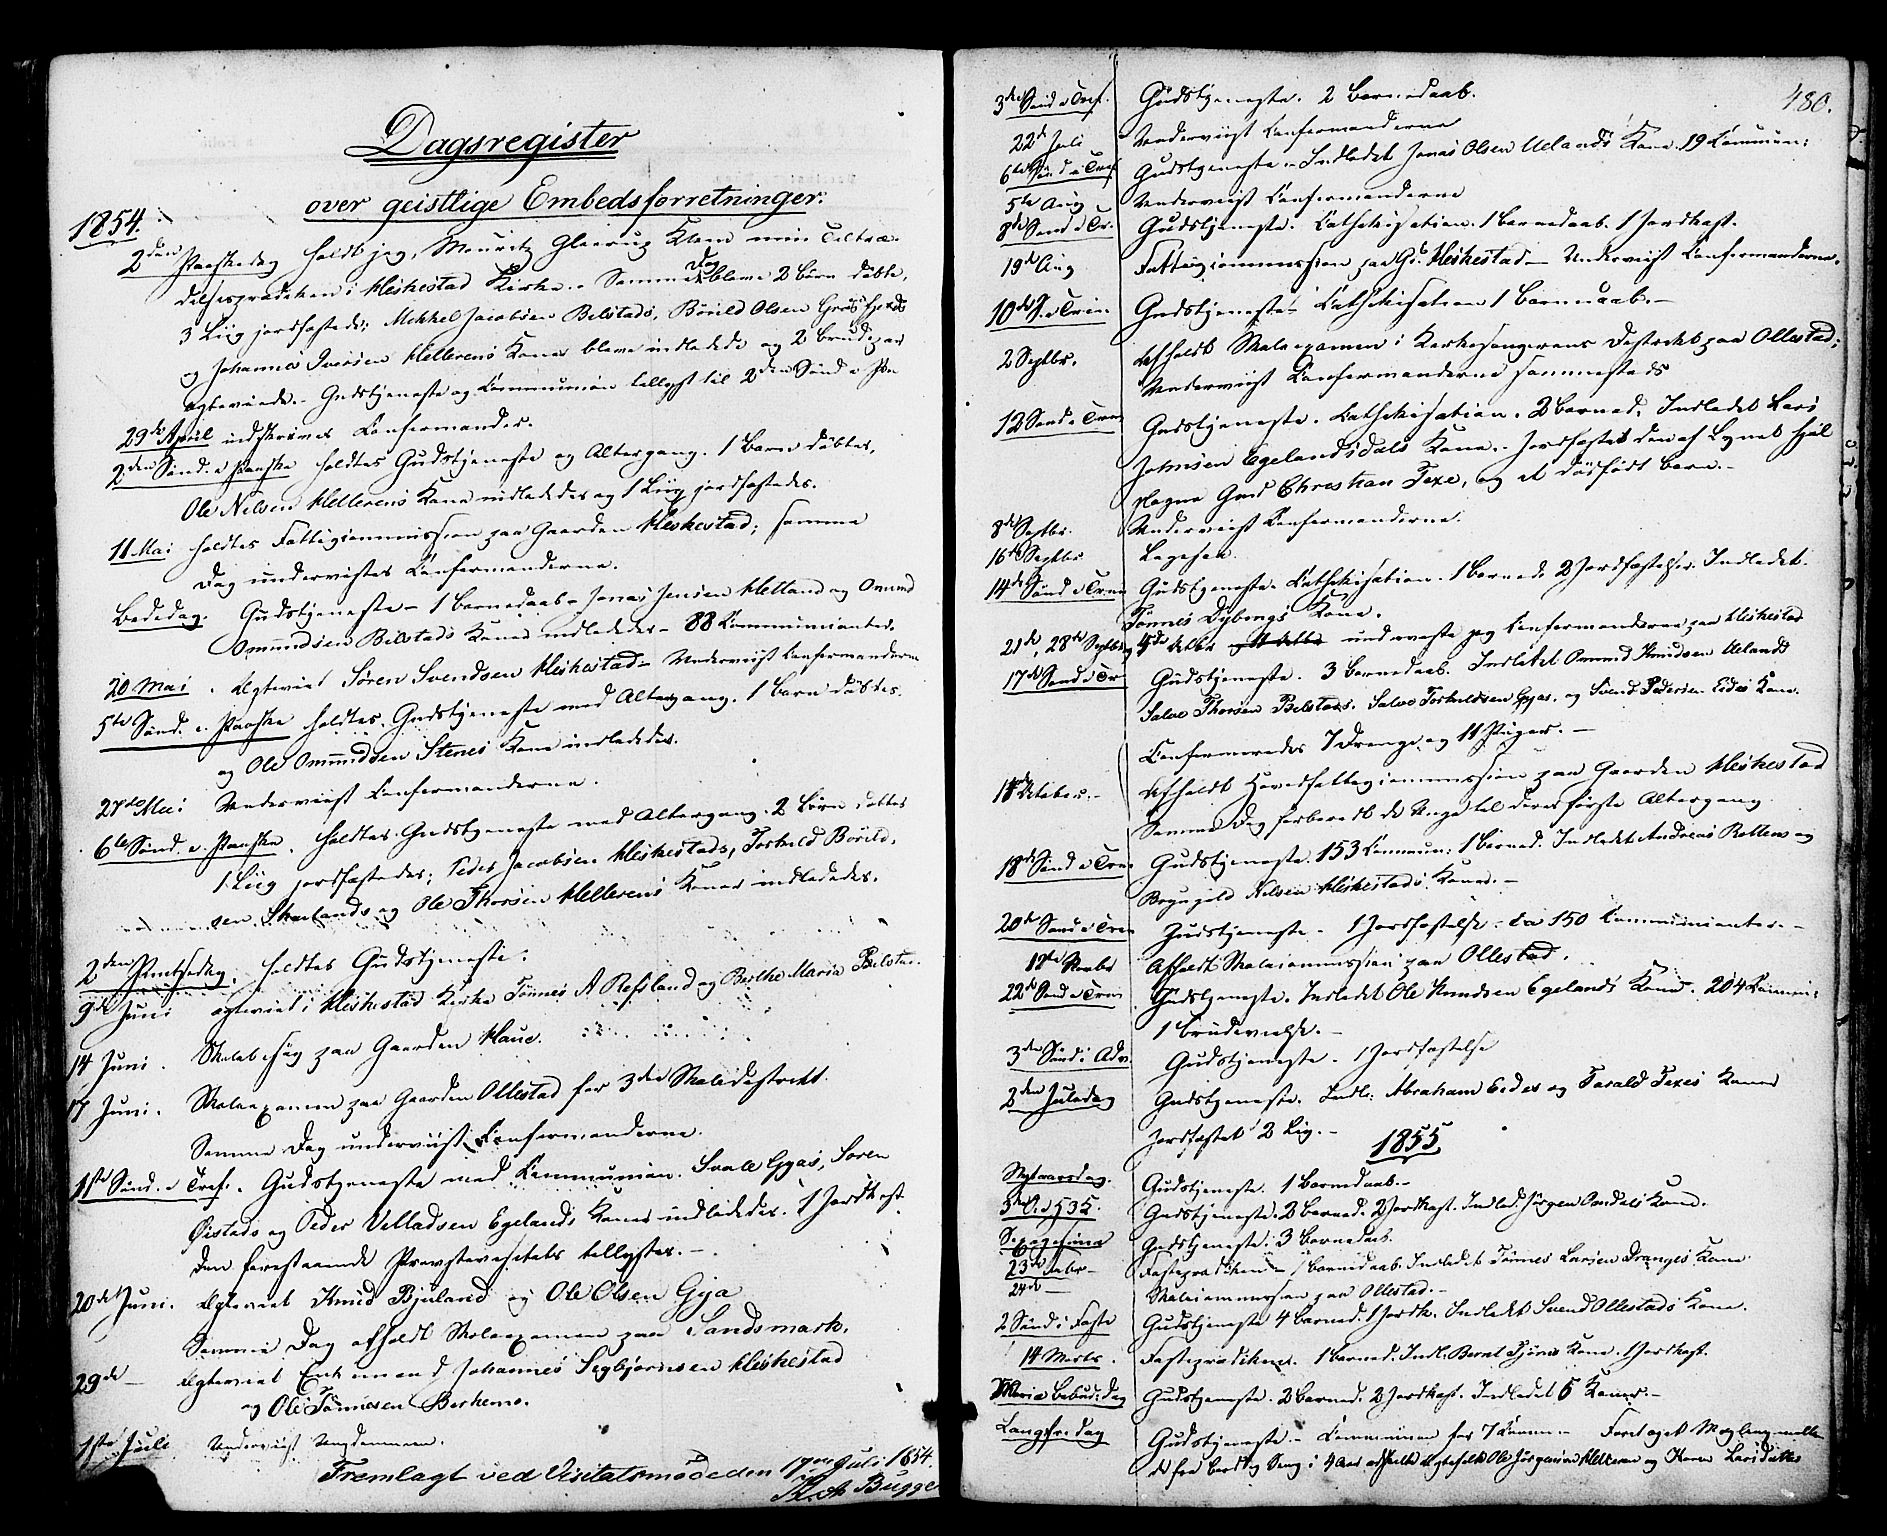 Dagsregister
over geistlige Embedsforretninger.
1854.
2den Paaskedag holdt jeg, Mouritz Gleerup min Tiltræ-
delsespræken i Heskestad Kirke. Samme Dag bleve 2 Børn døbte,
3 Liig jordfæstede; Mekkel Jacobsen Belstads, Børild Olsen
og Johannes Iversen Hellerens Koner bleve indledede og 2 Brudepar
egteviede. Gudstjeneste og Communion tillyst til 2den Sønd e Paa
29de April indskreves Confermander.
2den Sønd. e. Paaske holdtes Gudstjeneste og Altergang. 1 Barn døbtes,
Ole Nilsen Hellerens Kone indlededes og 1 Liig jordfæstedes.
11 Mai holdtes Fattigcommission paa Gaarden Heskestad; samme
Dag undervistes Confermanderne.
Bededag. Gudstjeneste - 1 Barnedaab - Jonas Jensen Helland og Omund
Omundsen Belstads Koner indlededes - 88 Communicanter.
20 Mai. Egteviet Søren Svendsen Heskestad - Underviist Confermanderne
5te Sønd. e. Paaske holdtes Gudstjeneste med Altergang. 1 Barn døbtes.
og Ole Omundsen Stenes Kone indlededes.
27de Mai Underviist Confermanderne.
6te Sønd. e. Paaske. holdtes Gudstjeneste med Altergang. 2 Børn døbtes
1 Liig jordfæstedes; Peder Jacobsen Heskestads, Torkild Børild-
sen Skarlands og Ole Thorsen Hellerens Koner indlededes.
2den Pintsedag. holdtes Gudstjeneste.
9de Juni egteviet i Heskestad Kirke Tönnes A Refsland og Berthe Maria Belstad.
14 Juni. Skolebesøg paa Gaarden Haue.
17 Juni. Skoleexamen paa Gaarden Ollestad for 3die Skoledistrikt.
Samme Dag underviist Confermanderne.
1ste Sønd. e Tref. Gudstjeneste med Communion. Svale Gyas, Soren
Øistads og Peder Velladsen Egelands Koner indlededes. 1 Jordkast.
Den forestaaende Provstevisitats tillystes. -
20de Juni. Egteviet Knud Bjuland og Ole Olsen Gya
Samme Dag afholdt Skoleexamen paa Sandsmark.
29de - Egteviet Enkemand Johannes Segbjørnsen Heskestad
og Ole Tönnesen Berkemo.
1ste Juli Underviist Ungdommen.
Fremlagt ved Visitatsmøde den 17de Juli 1854.
Bugge
480.
3de Sønd e Tref. Gudstjeneste. 2 Barnedaab.
22de Juli Underviist Confermanderne
6te Sønd e Tref Gudstjeneste. - Indledet Jonas Olsen Uelands Kone. 19 Commun:
5te Aug Underviist Confermanderne
8de Sønd e Tr. Gudstjeneste. Cathekisation. 1 Barnedaab. 1 Jordkast.
19de Aug Fattigcommission paa Gd. Heskestad - Underviist Confermanderne.
10de S. e Trin. Gudstjeneste - Cathekisation 1 Barnedaab. -
2 Septbr. Afholdt Skoleexamen i Kirkesangerens Distrikt paa Ollestad;
Underviist Confermanderne sammesteds
12 Sønd e Trin Gudstjeneste. Cathekisation. 2 Barned. Indledet Lars
Johnsen Egelandsdals Kone. - Jordfæstet den af Lynet ihjel
slagne Gud Christian Texe, og et dødfødt Barn. -
8de Septbr. Underviist Confermanderne.
16de Septbr
14de Sønd e Trin Gudstjeneste. Cathekisation. 1 Barned. 2 Jordfæstelser. Indledet.
Tønnes Dybings Kone.
21de, 28de Septbr og 4de Octbr underviste jeg Confermanderne paa Heskestad
17de Sønd e Tr Gudstjeneste. 3 Barnedaab. Indledet Omund Knudsen Uelands
Salve Thorsen Belstads. Salve Torkeldsen Gyas. og Svend Pedersen Eides Kone.
Confermeredes 7 Drenge og 11 Piger. -
October. - Afholdt Hovedfattigcommission paa Gaarden Heskestad
Samme Dag forberedt de Unge til deres første Altergang
18de Sønd e Trin Gudstjeneste. 153 Commun: 1 Barned. Indledet Andreas Rottens og
Nilsen Heskestads Koner. -
20de Sønd e Trin Gudstjeneste. - 1 Jordfæstelse - ca 150 Communicanter. -
Afholdt Skolecommission paa Ollestad.
22de Sønd e Trin Gudstjeneste. Indledet Ole Knudsen Egelands Kone. 204 Commun:
1 Brudevielse. -
3den Sønd i Adv. Gudstjeneste - 1 Jordfæstelse
2den Juledag Gudstjeneste. Indl: Abraham Eides og Tarald Texes Koner
Jordfæstet 2 Lig. -
1855
Nytaarsdag. Gudstjeneste. 1 Barnedaab. -
Gudstjeneste. 2 Barned. 2 Jordkast. Indled. Jørgen Kone.
Gudstjeneste. 3 Barnedaab.
23de Febr - Fasteprædiken - 1 Barnedaab. Indledet Tönnes Larsen Dranges Kone
24de - Skolecommission paa Ollestad. -
2 Sønd i Faste Gudstjeneste 4 Barned. 1 Jordk. Indledet Svend Ollestads Kone.
14 Marts. Fasteprædiken. 1 Barned. Indl. Bernt Kone. 1 Jordkast.
Maria Bebud: Dag Gudstjeneste. 2 Barned. 2 Jordkast. Indledet 5 Koner. -
Langfredag Gudstjeneste. - Communion for 7 - Foretaget Mægling mellem
de fra Bord og Seng i 4 Aar adskilte Egtefolk Ole Jörgensen Helleren og Karen Larsdatter